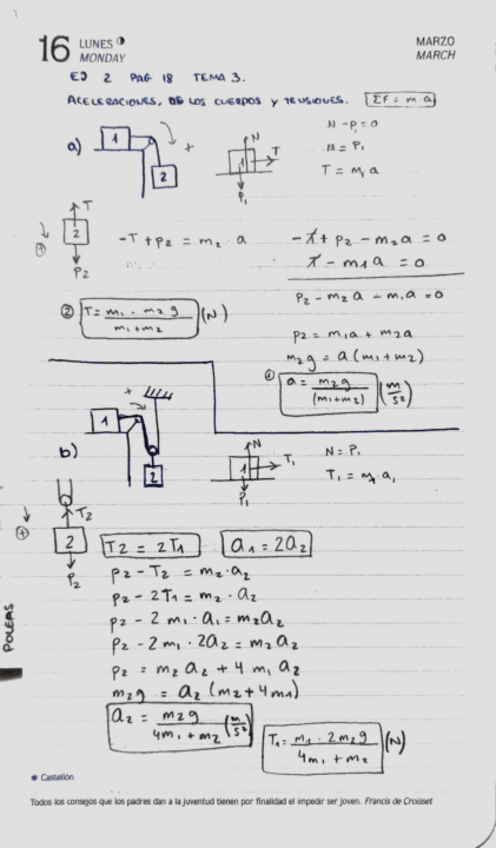 16 LUNES
MONDAY
MARZO
MARCH
EJ 2 PAG 18 TEMA 3.
ACELERACIONES, DE LOS CUERPOS Y TENSIONES. ΣF = m·a
a) 1 2 +
1 N T P₁
N - P₁ = 0
N = P₁
T = m₁a
T 2 P₂ +
-T + P₂ = m₂·a
-T + P₂ - m₂a = 0
T - m₁a = 0
P₂ - m₂a - m₁a = 0
② T = m₁·m₂g / m₁+m₂ (N)
P₂ = m₁a + m₂a
m₂g = a(m₁+m₂)
① a = m₂g / (m₁+m₂) (m/s²)
b) 1 2 +
1 N T₁ P₁
N = P₁
T₁ = m₁a₁
T₂ 2 P₂ +
T₂ = 2T₁ a₁ = 2a₂
P₂ - T₂ = m₂·a₂
P₂ - 2T₁ = m₂·a₂
P₂ - 2m₁·a₁ = m₂a₂
P₂ - 2m₁·2a₂ = m₂a₂
P₂ = m₂a₂ + 4m₁a₂
m₂g = a₂(m₂+4m₁)
a₂ = m₂g / 4m₁+m₂ (m/s²)
T₁ = m₁·2m₂g / 4m₁+m₂ (N)
POLEAS
* Castellón
Todos los consejos que los padres dan a la juventud tienen por finalidad el impedir ser joven. Francis de Croisset